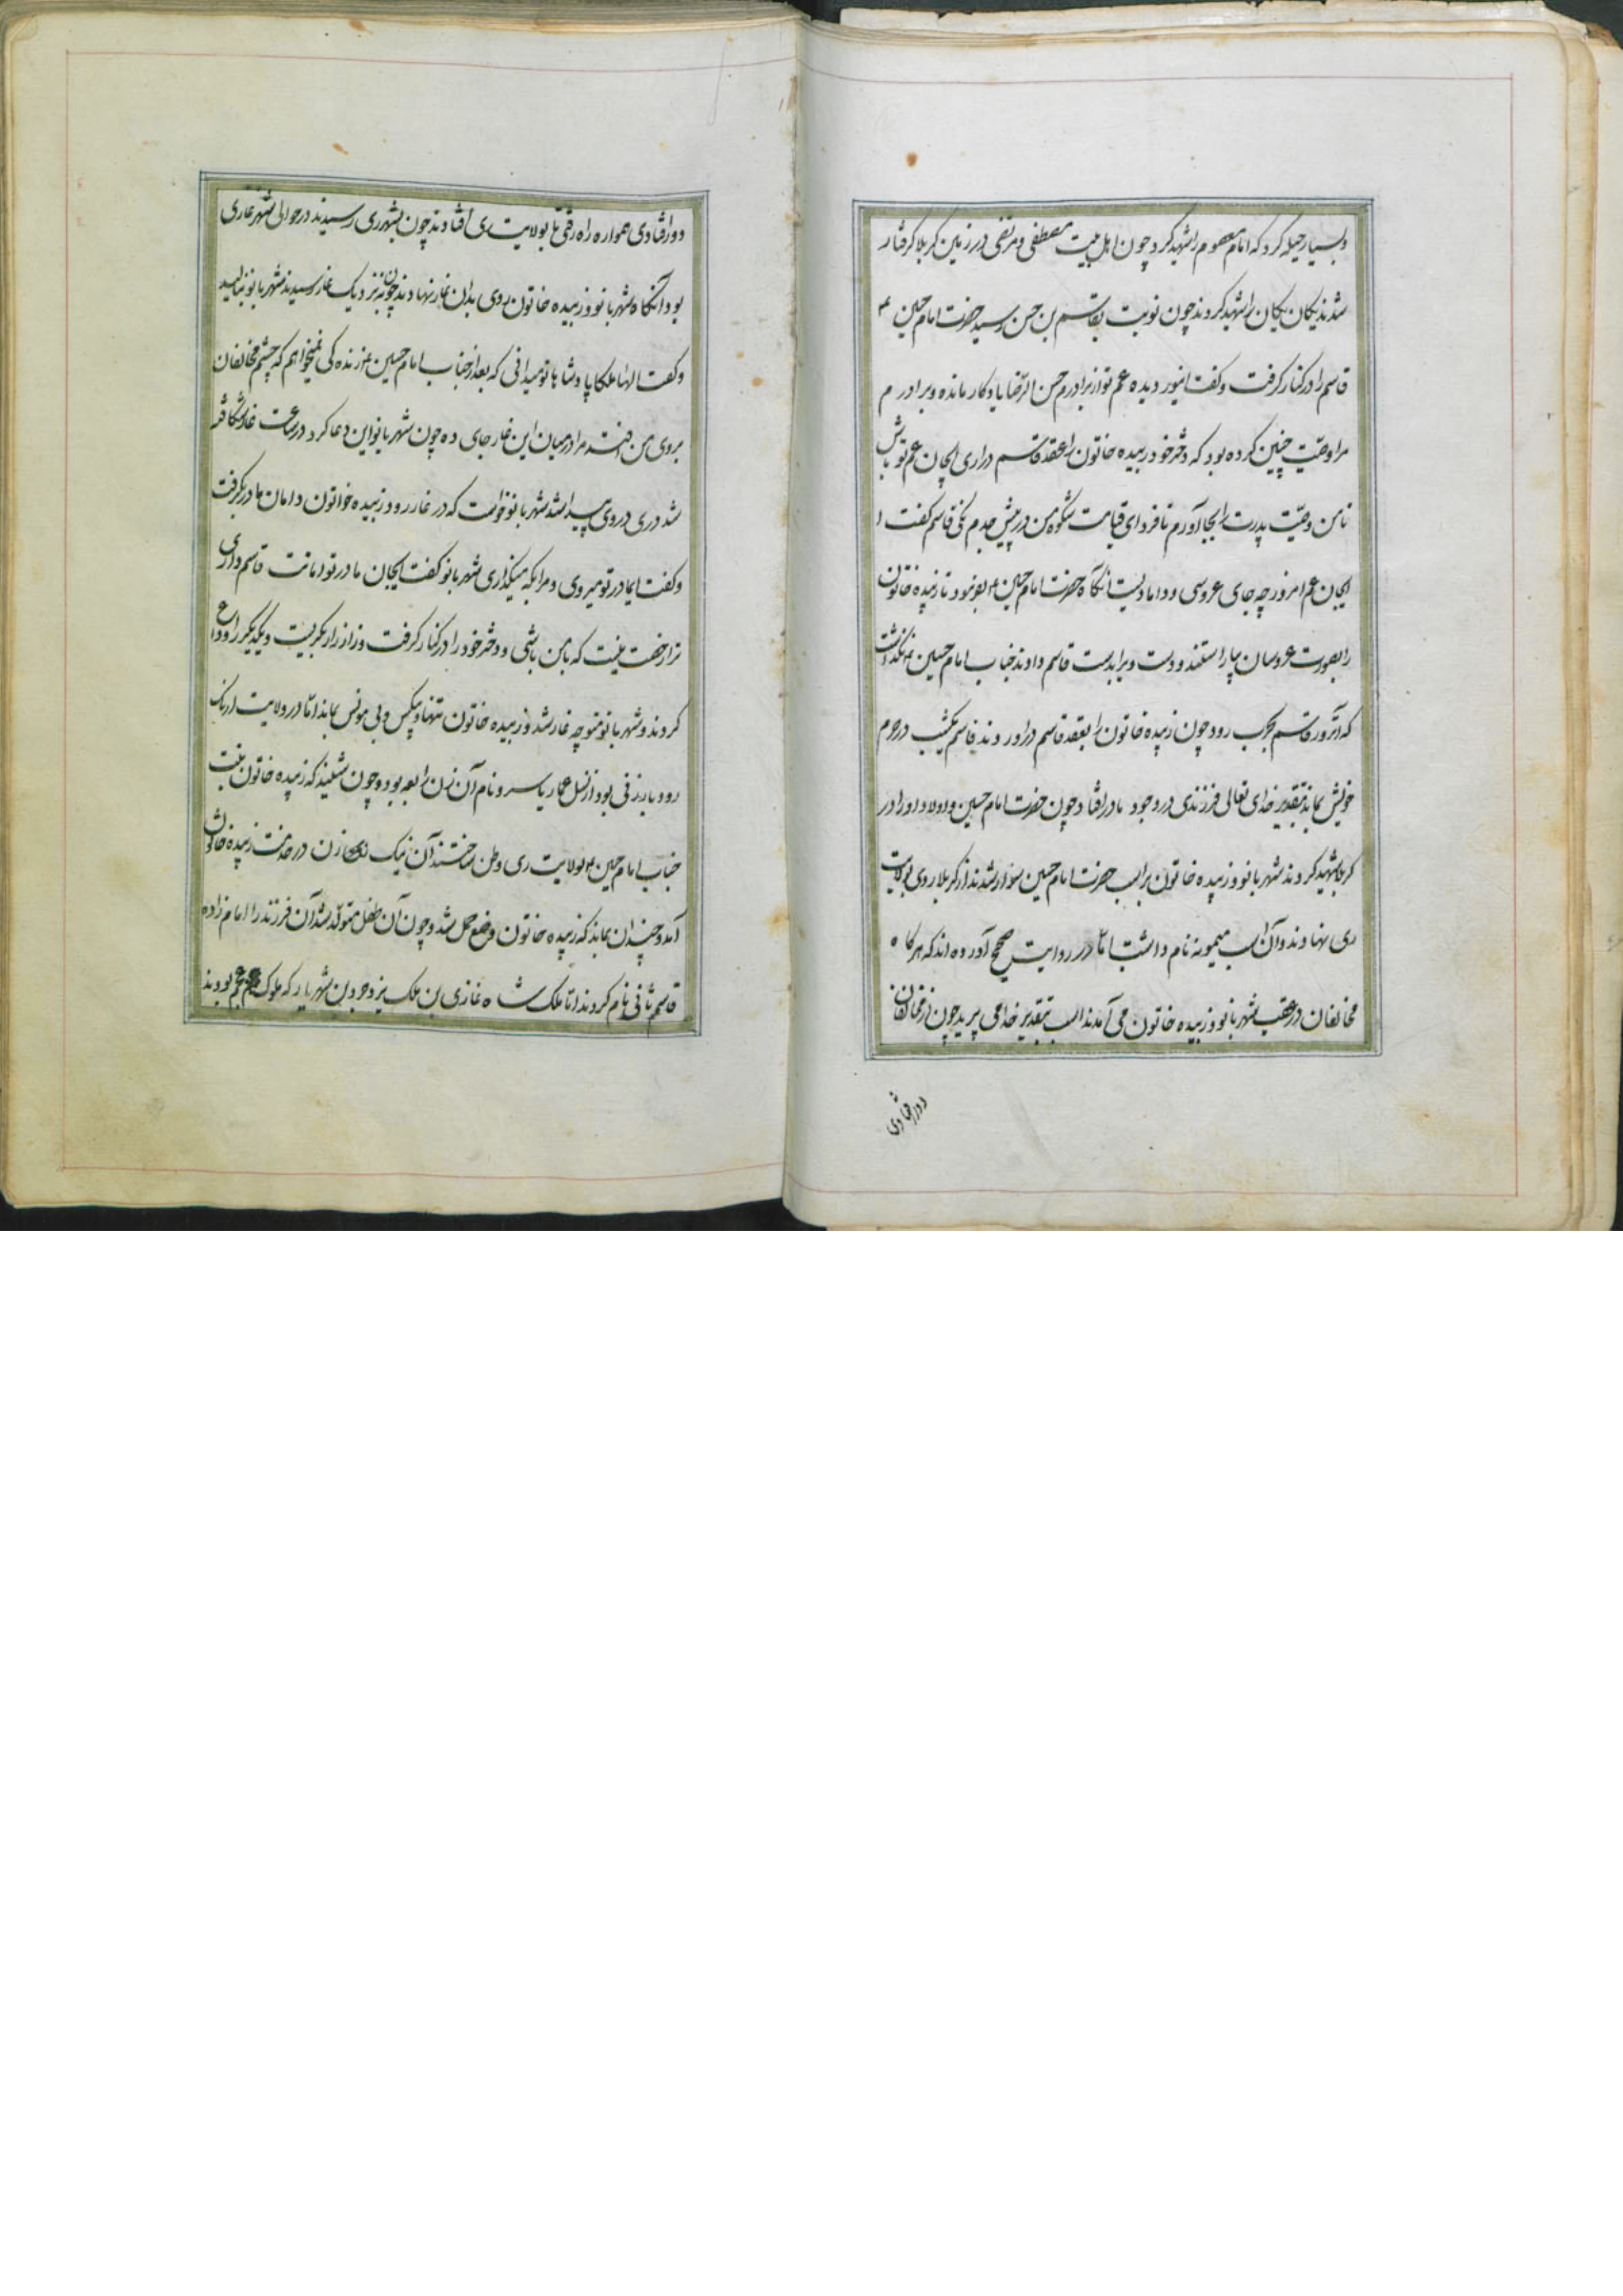 و بسیار حیله کرد که امام معصوم را شهید کرد چون اهل بیت مصطفی و مرتضی در زمین کربلا گرفتار
شدند یکان یکان را شهید کردند چون نوبت بقاسم بن حسن رسید حضرت امام حسین ع
قاسم را در کنار گرفت و گفت ای نور دیده عم تو از برادرم حسن الرضا یادگار مانده و برادرم
مرا وصیت چنین کرده بود که دختر خود زبیده خاتون را بعقد قاسم دراری ایجان عم تو باش
تا من وصیت پدرت را بجا آورم تا فردای قیامت شکوه من در پیش جدم نکنی قاسم گفت ا
ایجان عم امروز چه جای عروسی و دامادیست آنگاه حضرت امام حسین ع بفرمود تا زبیده خاتون
را بصورت عروسان بیاراستند و دست ویرا بدست قاسم دادند جناب امام حسین ع نگذاشت
که آنروز قاسم بحرب رود چون زبیده خاتون را بعقد قاسم دراوردند قاسم یکشب در حرم
خویش بماند بتقدیر خدای تعالی فرزندی در وجود مادر افتاد چون حضرت امام حسین و اولاد او را در
کربلا شهید کردند شهربانو و زبیده خاتون بر اسب حضرت امام حسین سوار شدند از کربلا روی بولایت
ری نهادند و آن اسب میمونه نام داشت اما در روایت صحیح آورده اند که هرگاه
مخالفان در عقب شهربانو و زبیده خاتون می آمدند اسب بتقدیر خدا می پرید چون از مخالفان
دور افتادی
دور افتادی همواره راه رفتی تا بولایت ری افتادند چون بشهر ری رسیدند در حوالی شهر غاری
بود آنگاه شهربانو و زبیده خاتون روی بدان غار نهادند چون بنزدیک غار رسیدند شهربانو بنالید
و گفت الها ملکا پادشاها تو میدانی که بعد از جناب امام حسین ع زنده گی نمیخواهم که چشم مخالفان
بروی من افتد مرا در میان این غار جای ده چون شهربانو این دعا کرد در ساعت غار شکافته
شد دری در وی پیدا شد شهربانو خواست که در غار رود زبیده خواتون دامان مادر بگرفت
و گفت ایمادر تو میروی و مرا بکه میگذاری شهربانو گفت ایجان مادر تو امانت قاسم داری
ترا رخصت نیست که با من باشی و دختر خود را در کنار گرفت و زار زار بگریست و یکدیگر را وداع
کردند و شهربانو متوجه غار شد و زبیده خاتون تنها و بیکس و بی مونس بماند اما در ولایت
رودبار زنی بود از نسل عمار یاسر و نام آن زن رابعه بود و چون شنید که زبیده خاتون بنت
جناب امام حسین ع بولایت ری وطن ساختند آن نیک زن در خدمت زبیده خاتون
آمد و چندان بماند که زبیده خاتون وضع حمل شد و چون آن طفل متولد شد آن فرزند را امام زاده
قاسم ثانی نام کردند اما ملک شاه غازی بن ملک یزدجرد بن شهریار که ملوک عجم بودند